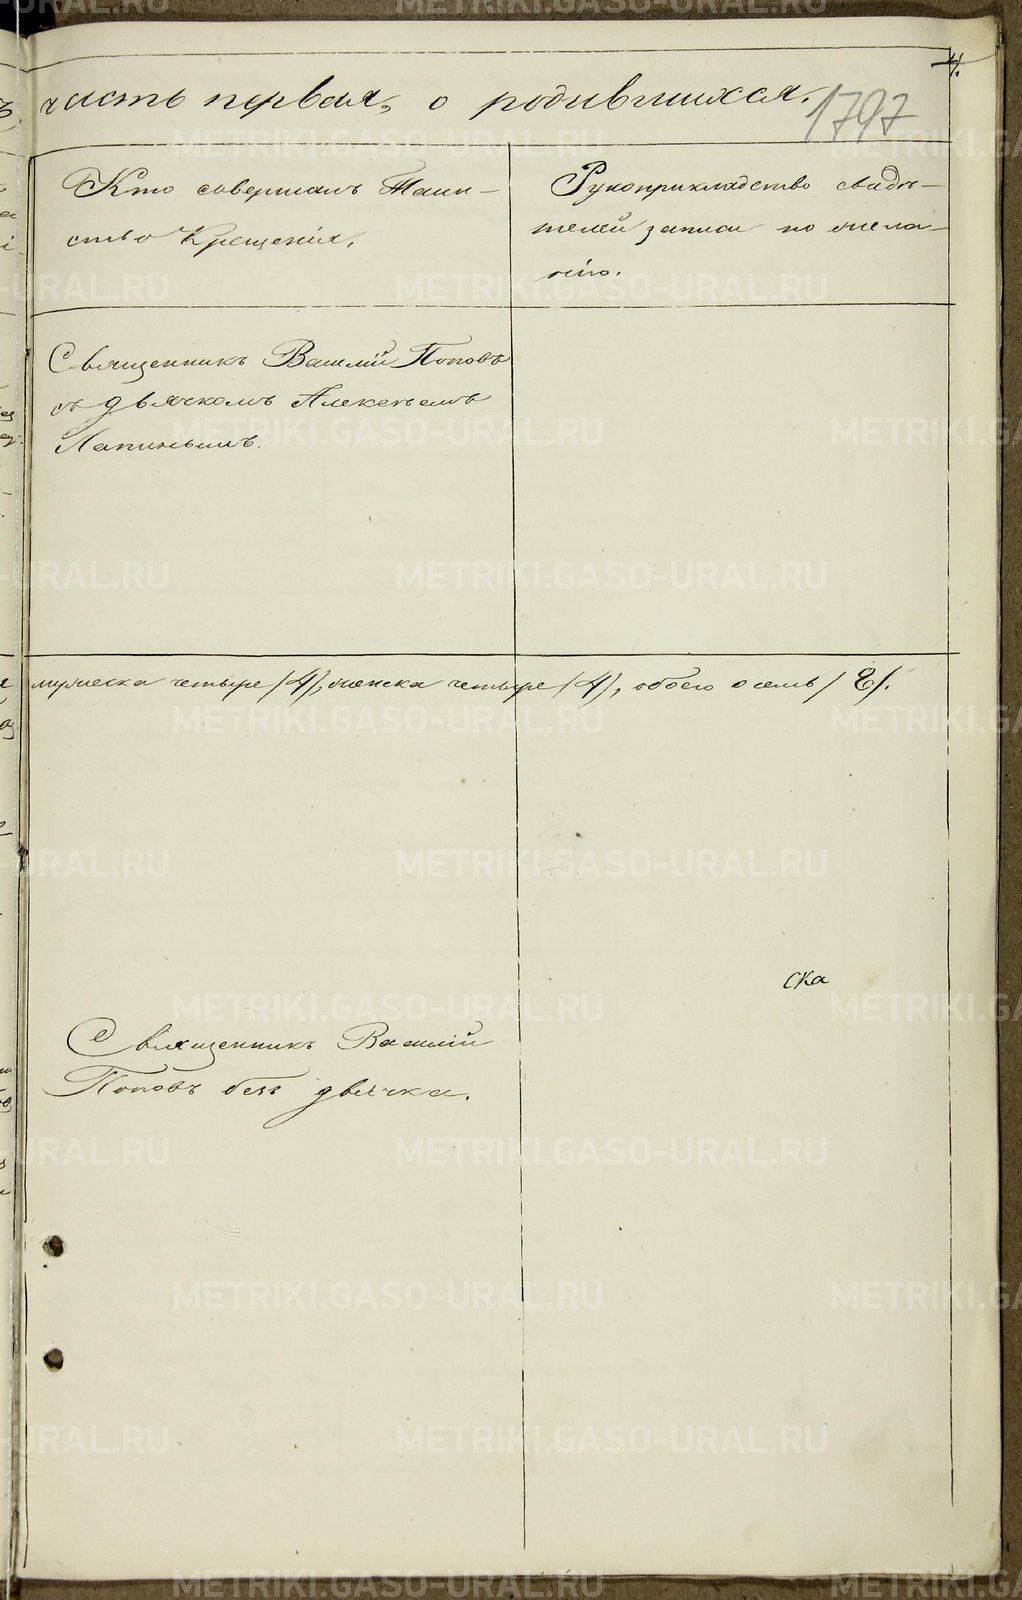 4.
часть первая, о родившихся.
1797
Кто совершалъ Таин-
ство Крещенія.
Рукоприкладство свидѣ-
телей записи по жела-
нію.
Священникъ Василій Поповъ
съ дьячкомъ Алексѣемъ
Лапинымъ.
мужеска четыре /4/, женска четыре /4/, обоего осемь / 8/.
ска
Священникъ Василій
Поповъ безъ дьячка.
METRIKI.GASO-URAL.RU